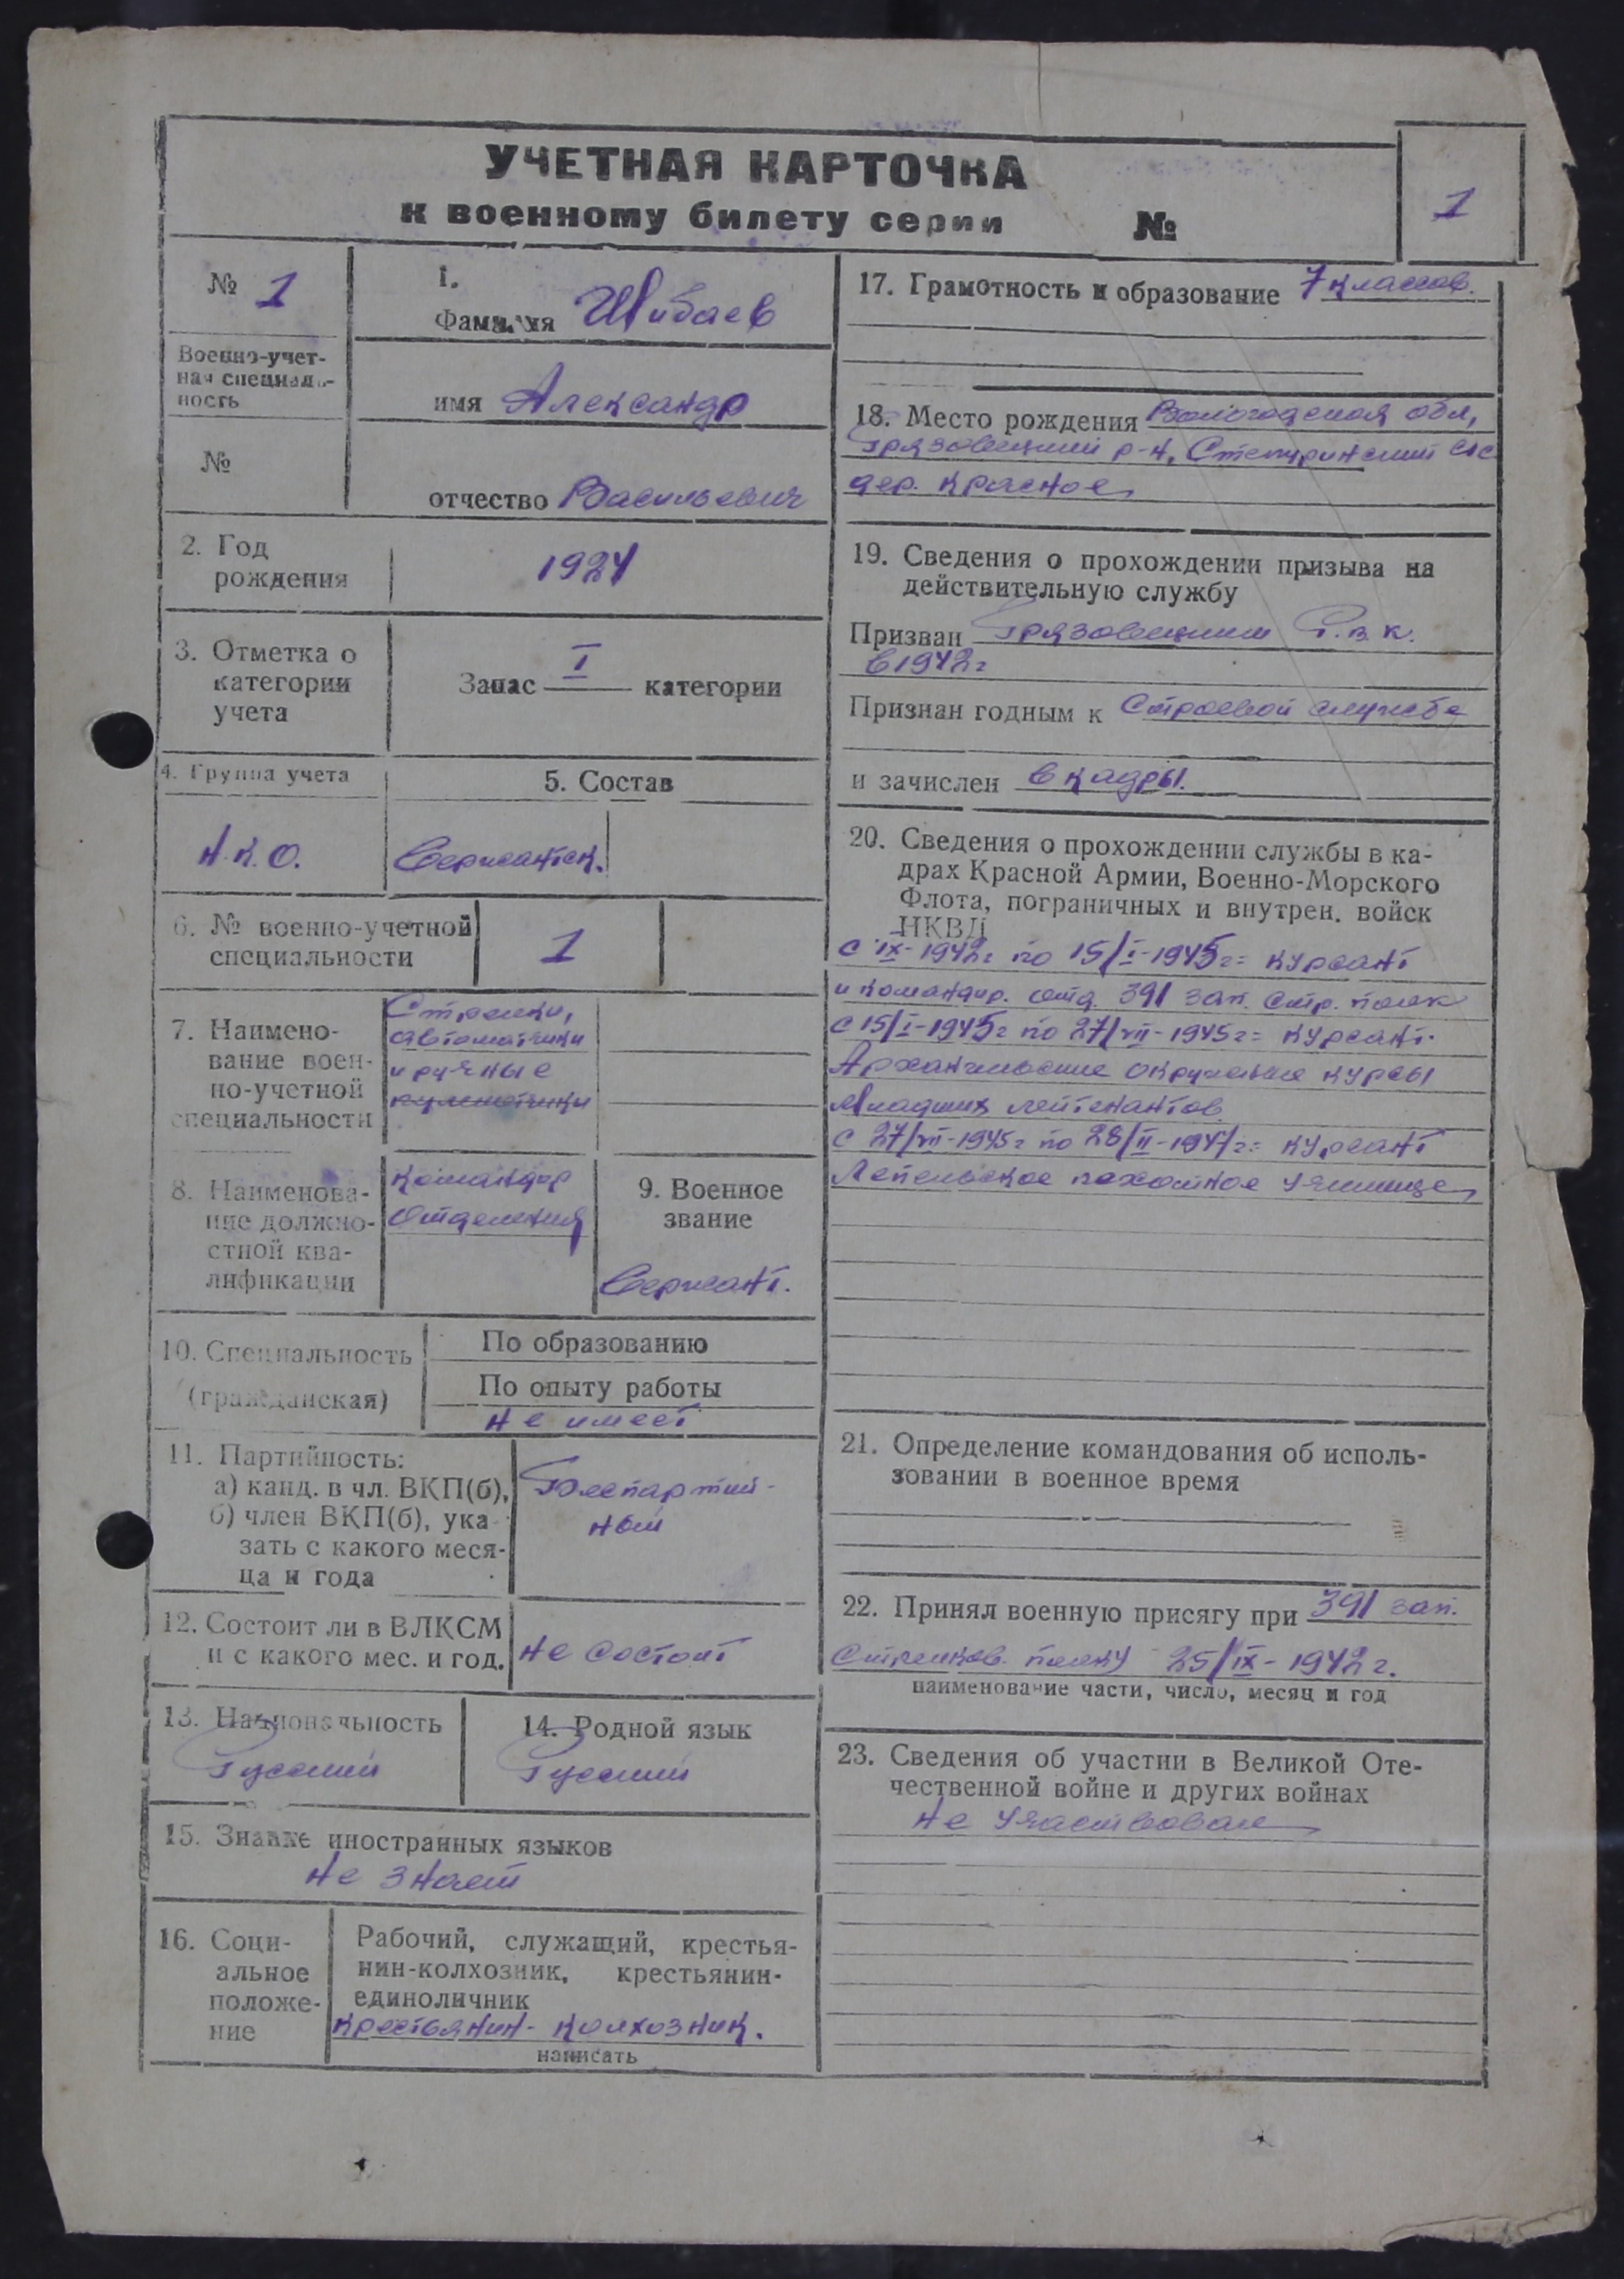 УЧЕТНАЯ КАРТОЧКА
к военному билету серии №
1
№ 1
Военно-учет-
ная специаль-
ность
№
1.
Фамилия Шибаев
имя Александр
отчество Васильевич
2. Год
рождения
1924
3. Отметка о
категории
учета
Запас I категории
4. Группа учета
Н.К.О.
5. Состав
Сержантск.
6. № военно-учетной
специальности
1
7. Наимено-
вание воен-
но-учетной
специальности
Стрелки,
автоматчики
и ручные
пулеметчики
8. Наименова-
ние должно-
стной ква-
лификации
Командир
отделения
9. Военное
звание
Сержант.
10. Специальность
(гражданская)
По образованию
По опыту работы
не имеет
11. Партийность:
а) канд. в чл. ВКП(б),
б) член ВКП(б), ука
зать с какого меся-
ца и года
Беспартий-
ный
12. Состоит ли в ВЛКСМ
и с какого мес. и год.
не состоит
13. Национальность
Русский
14. Родной язык
Русский
15. Знание иностранных языков
не знает
16. Соци-
альное
положе-
ние
Рабочий, служащий, крестья-
нин-колхозник, крестьянин-
единоличник
крестьянин-колхозник.
написать
17. Грамотность и образование 7 классов.
18. Место рождения Вологодская обл,
Грязовецкий р-н, Степуринский с/с
дер. Красное
19. Сведения о прохождении призыва на
действительную службу
Призван Грязовецким Р.В.К.
в 1942г
Признан годным к Строевой службе
и зачислен в кадры.
20. Сведения о прохождении службы в ка-
драх Красной Армии, Военно-Морского
Флота, пограничных и внутрен. войск
НКВД
с IX-1942г по 15/I-1945г= курсант
и командир. отд. 391 зап. стр. полк
с 15/I-1945г по 27/VII-1945г= курсант.
Архангельские окружные курсы
Младших лейтенантов
с 27/VII-1945г по 28/II-1947г= курсант
Лепельское пехотное училище
21. Определение командования об исполь-
зовании в военное время
22. Принял военную присягу при 391 зап.
Стрелков. полку 25/IX-1942г.
наименование части, число, месяц и год
23. Сведения об участии в Великой Оте-
чественной войне и других войнах
не участвовал